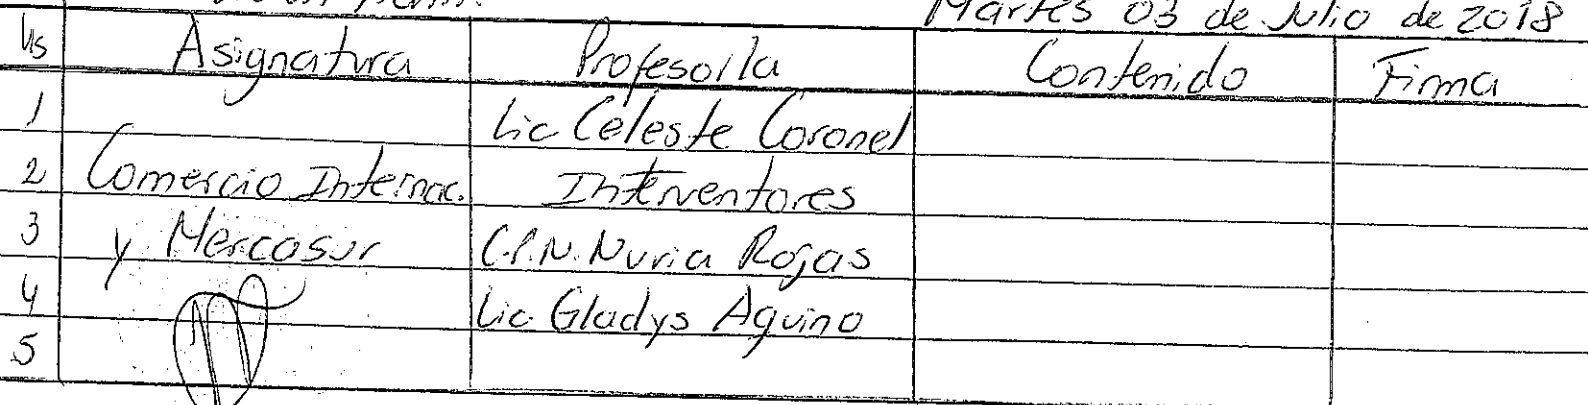 Martes 03 de Julio de 2018
Hs Asignatura Profesor/la Contenido Firma
1 Lic Celeste Coronel
2 Comercio Internac. Interventores
3 y Mercosur C.P.N. Nuria Rojas
4 Lic Gladys Aquino
5